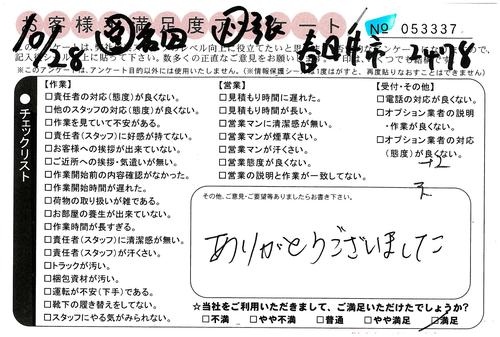 お客様不満足度アンケート
№ 053337
10/28
2478
※このアンケートは、アンケート目的以外には使用いたしません。(※情報保護シールは1度はがすと、再度貼りなおすことはできません)
チェックリスト
【作業】
□責任者の対応(態度)が良くない。
□他のスタッフの対応(態度)が良くない。
□作業を見ていて不安がある。
□責任者(スタッフ)に好感が持てない。
□お客様への挨拶が出来ていない。
□ご近所への挨拶・気遣いが無い。
□作業開始前の内容確認がなかった。
□作業開始時間が遅れた。
□荷物の取り扱いが雑である。
□お部屋の養生が出来ていない。
□作業時間が長すぎる。
□責任者(スタッフ)に清潔感が無い。
□責任者(スタッフ)が汗くさい。
□トラックが汚い。
□梱包資材が汚い。
□運転が不安(下手)である。
□靴下の履き替えをしてない。
□スタッフにやる気がみられない。
【営業】
□見積もり時間に遅れた。
□見積もり時間が長い。
□営業マンに清潔感が無い。
□営業マンが煙草くさい。
□営業マンが汗くさい。
□営業態度が良くない。
□営業の説明と作業が一致してない。
【受付・その他】
□電話の対応が良くない。
□オプション業者の説明
・作業が良くない。
□オプション業者の対応
(態度)が良くない。
その他、ご意見・ご要望等ありましたらお書き下さい。
ありがとうございました
☆当社をご利用いただきまして、ご満足いただけたでしょうか?
□不満 □やや不満 □普通 □やや満足 □満足